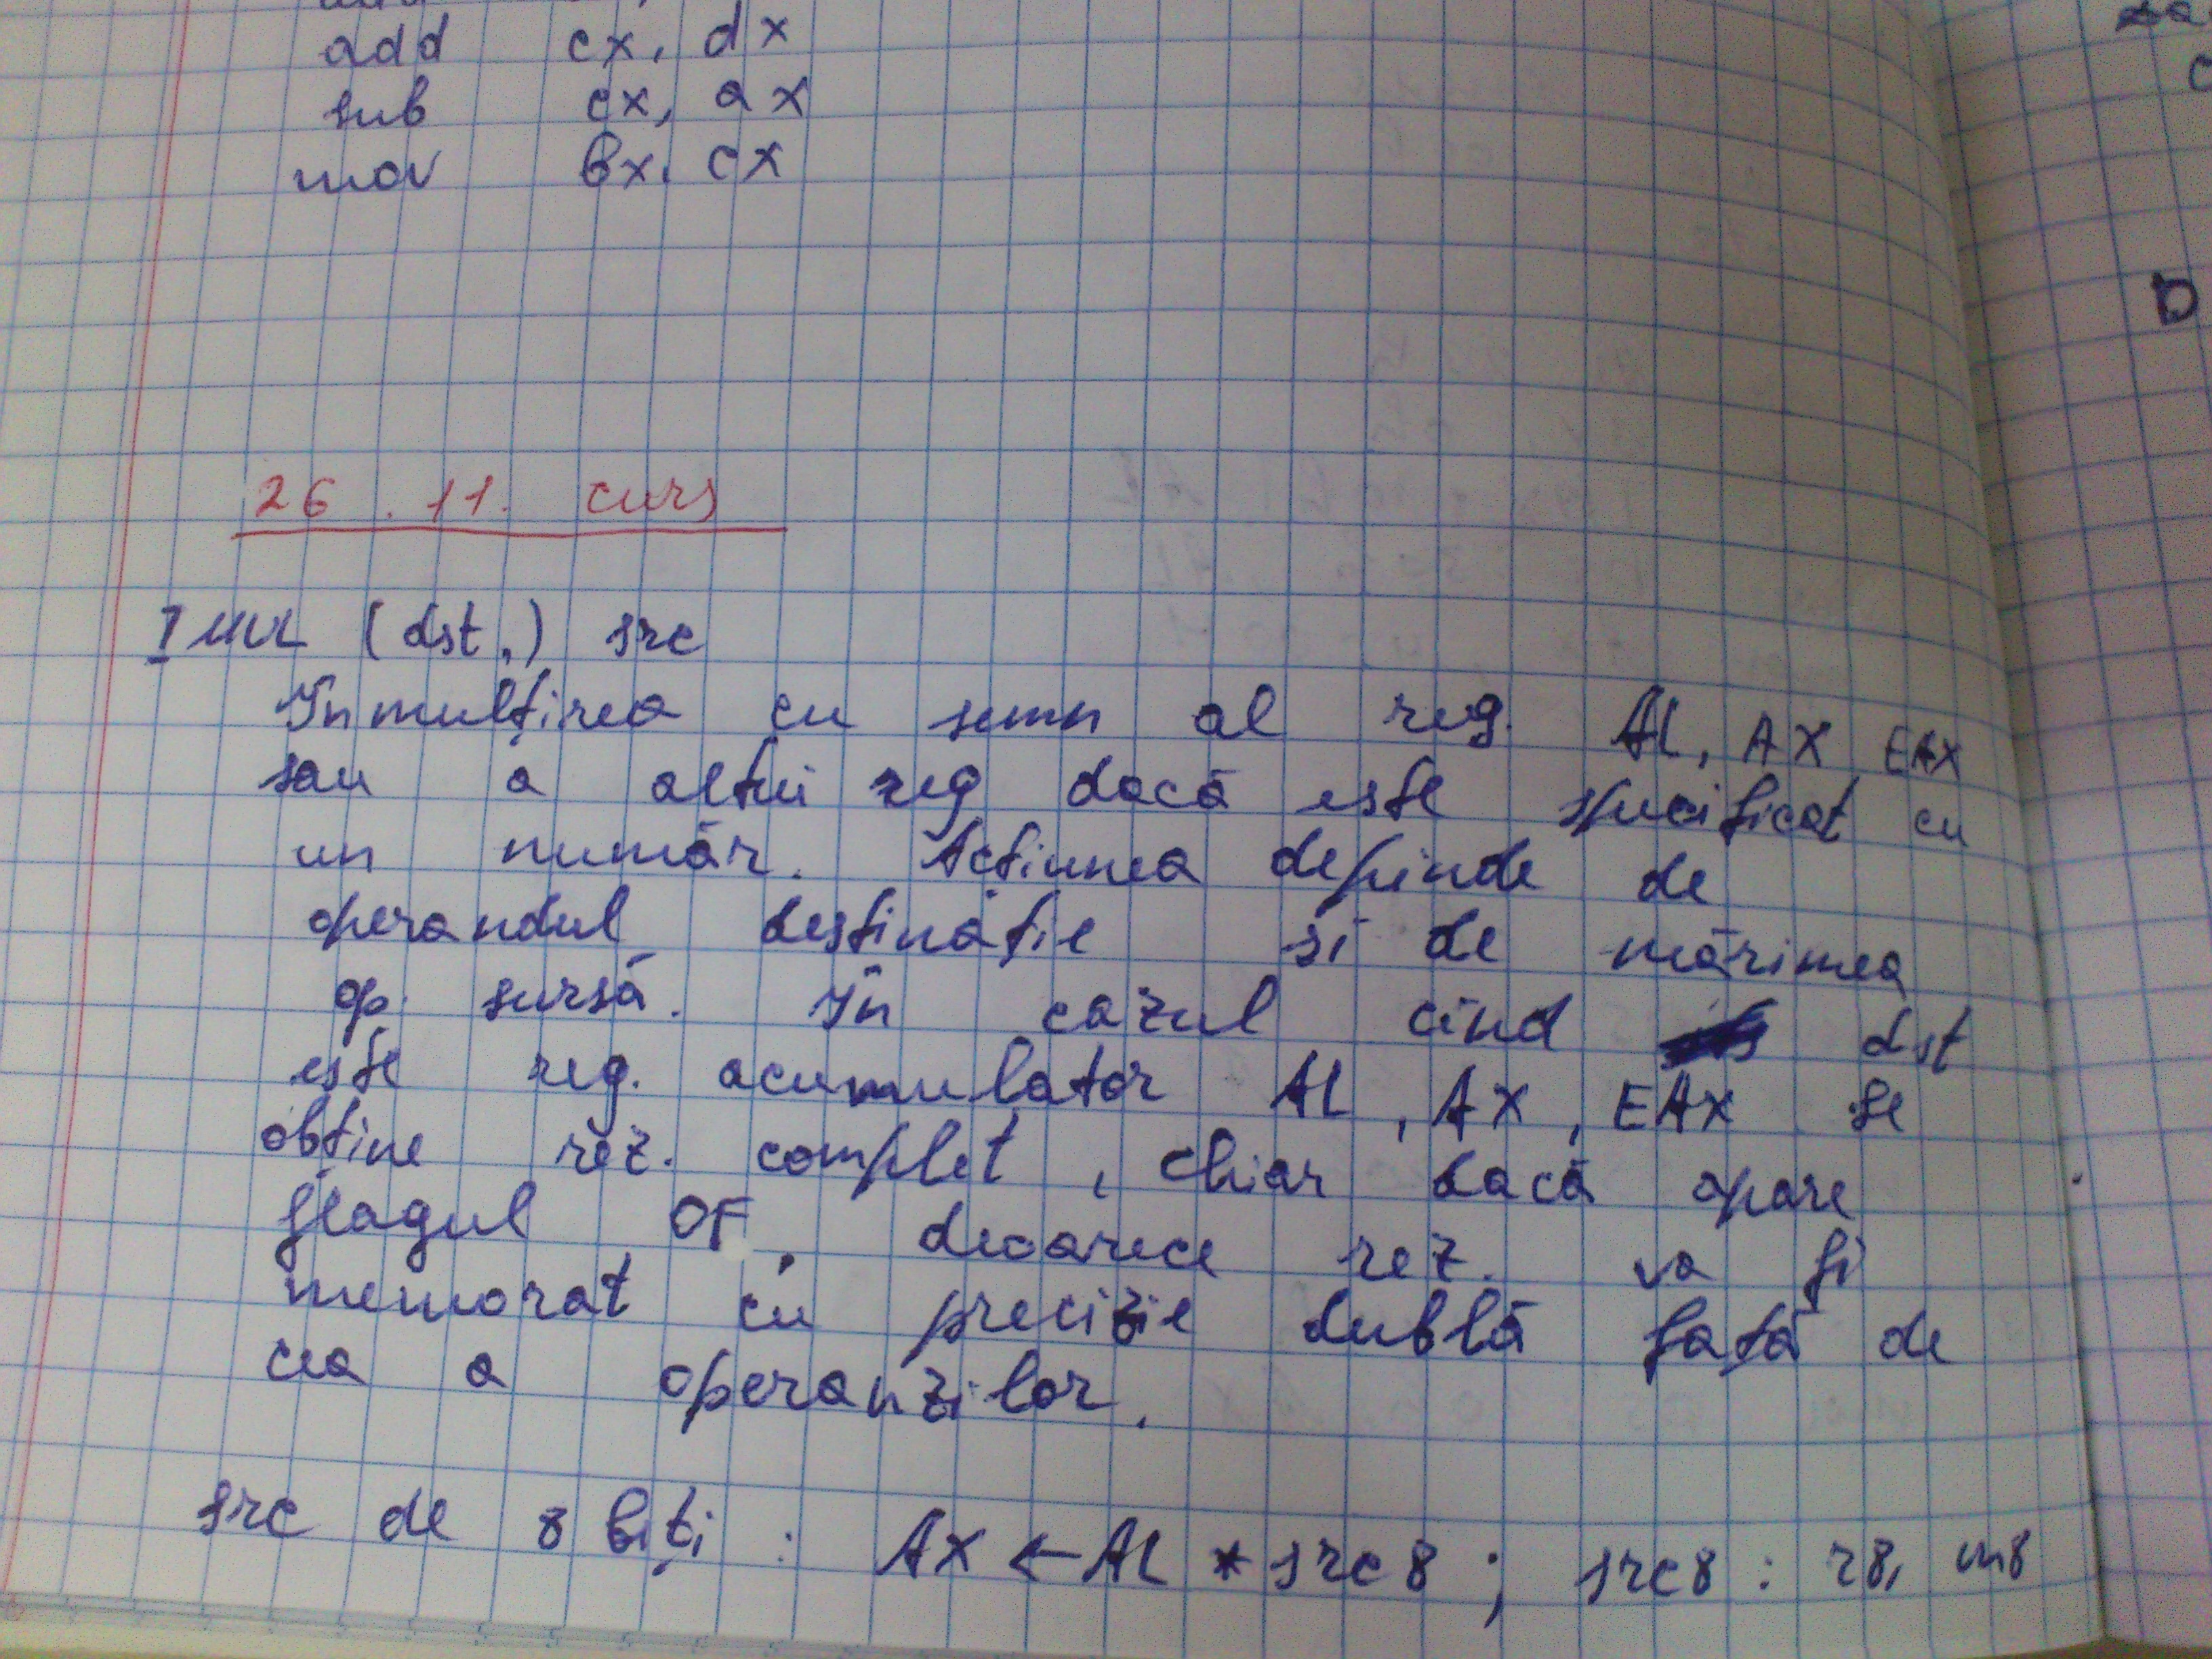 add cx, dx
sub cx, ax
mov bx, cx
26.11. curs
IMUL (dst,) src
Înmulțirea cu semn al reg. AL, AX EAX
sau a altui reg dacă este specificat cu
un număr. Acțiunea depinde de
operandul destinație și de mărimea
op. sursă. În cazul cînd dst
este reg. acumulator AL, AX, EAX se
obține rez. complet, chiar dacă apare
flagul OF, deoarece rez. va fi
memorat cu precizie dublă față de
cea a operanzilor.
src de 8 biți : AX ← AL * src8 ; src8 : r8, m8
D